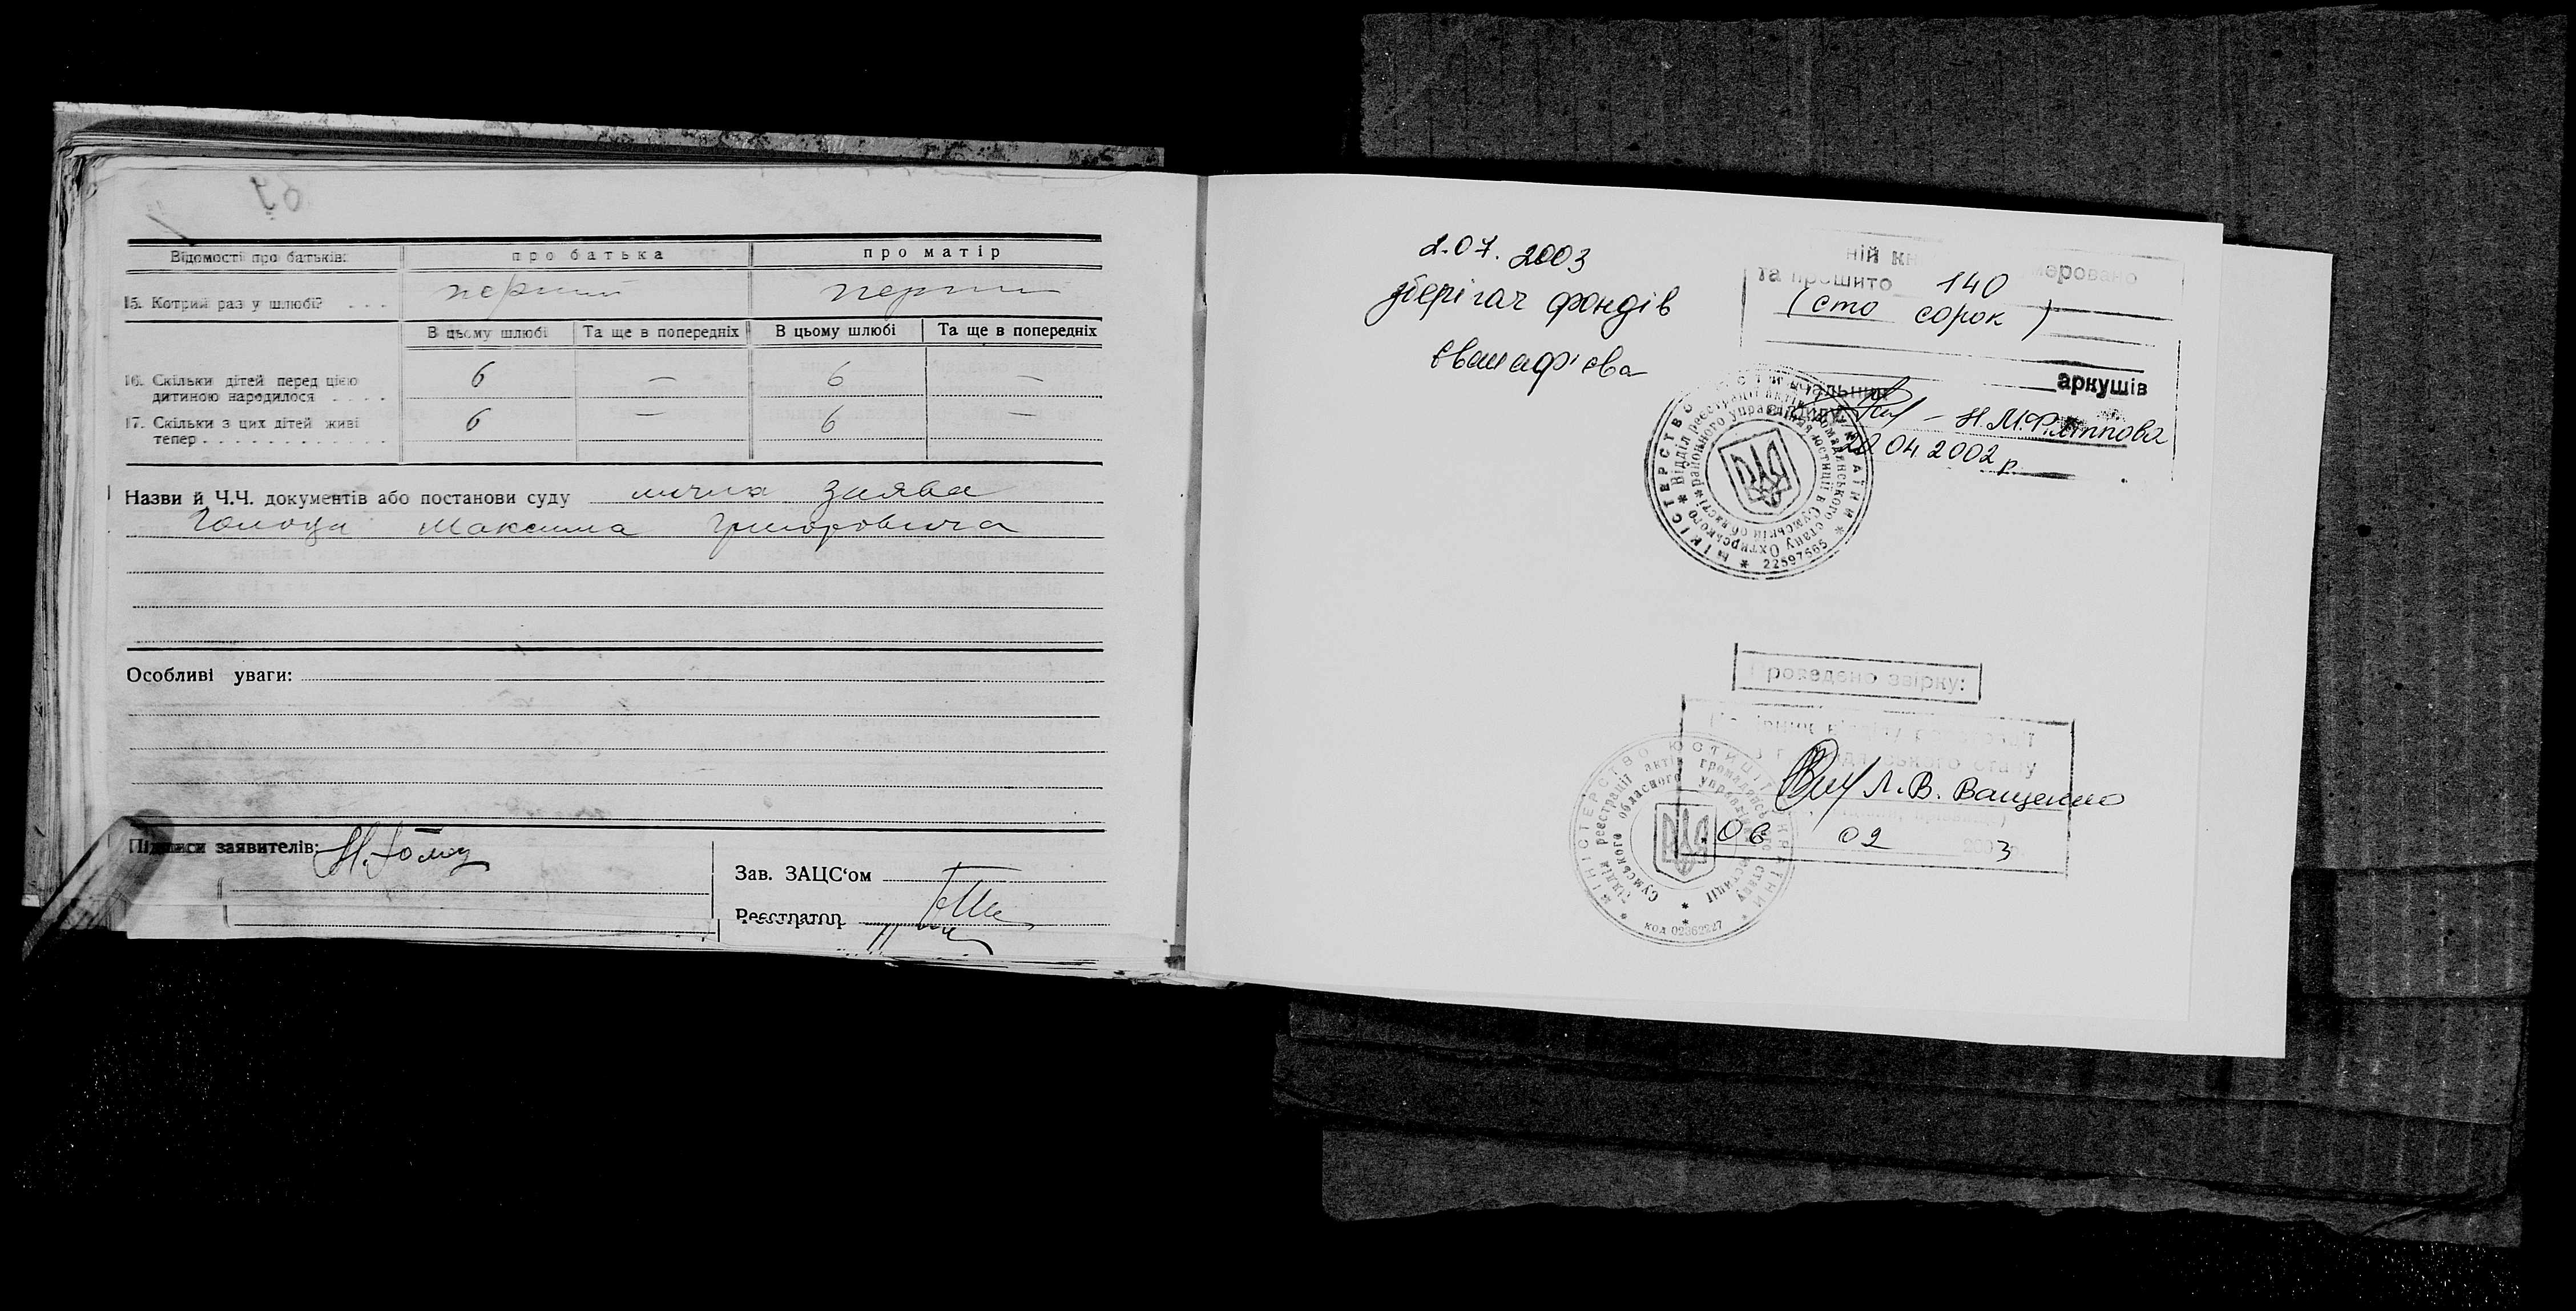 Відомості про батьків: про батька про матір
15. Котрий раз у шлюбі? . . . перший перший
В цьому шлюбі Та ще в попередніх В цьому шлюбі Та ще в попередніх
16. Скільки дітей перед цією дитиною народилося . . . . 6 — 6 —
17. Скільки з цих дітей живі тепер . . . . . . . . . . . . . 6 — 6 —
Назви й Ч.Ч. документів або постанови суду лична заява
Максима Григоровича
Особливі уваги:
Підписи заявителів:
Зав. ЗАЦС‘ом
Реєстратор
2.07.2003
зберігач фондів
та прошито 140
(сто сорок)
аркушів
Н.М.Філіппова
04 2002 р
МІНІСТЕРСТВО ЮСТИЦІЇ УКРАЇНИ
Відділ реєстрації актів громадянського стану Охтирського
районного управління юстиції в Сумській області
22597565
Проведено звірку:
Л.В. Ващенко
06 02 2003
МІНІСТЕРСТВО ЮСТИЦІЇ УКРАЇНИ
Відділ реєстрації актів громадянського стану
Сумського обласного управління юстиції
код 02362227